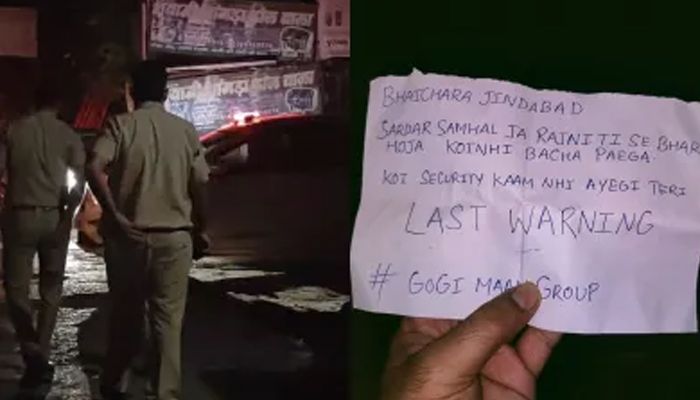 BHAICHARA JINDABAD
SARDAR SAMHAL JA RAJNITI SE BHAR
HOJA KOI NHI BACHA PAEGA.
KOI SECURITY KAAM NHI AYEGI TERI
LAST WARNING
# GOGI MAAN GROUP